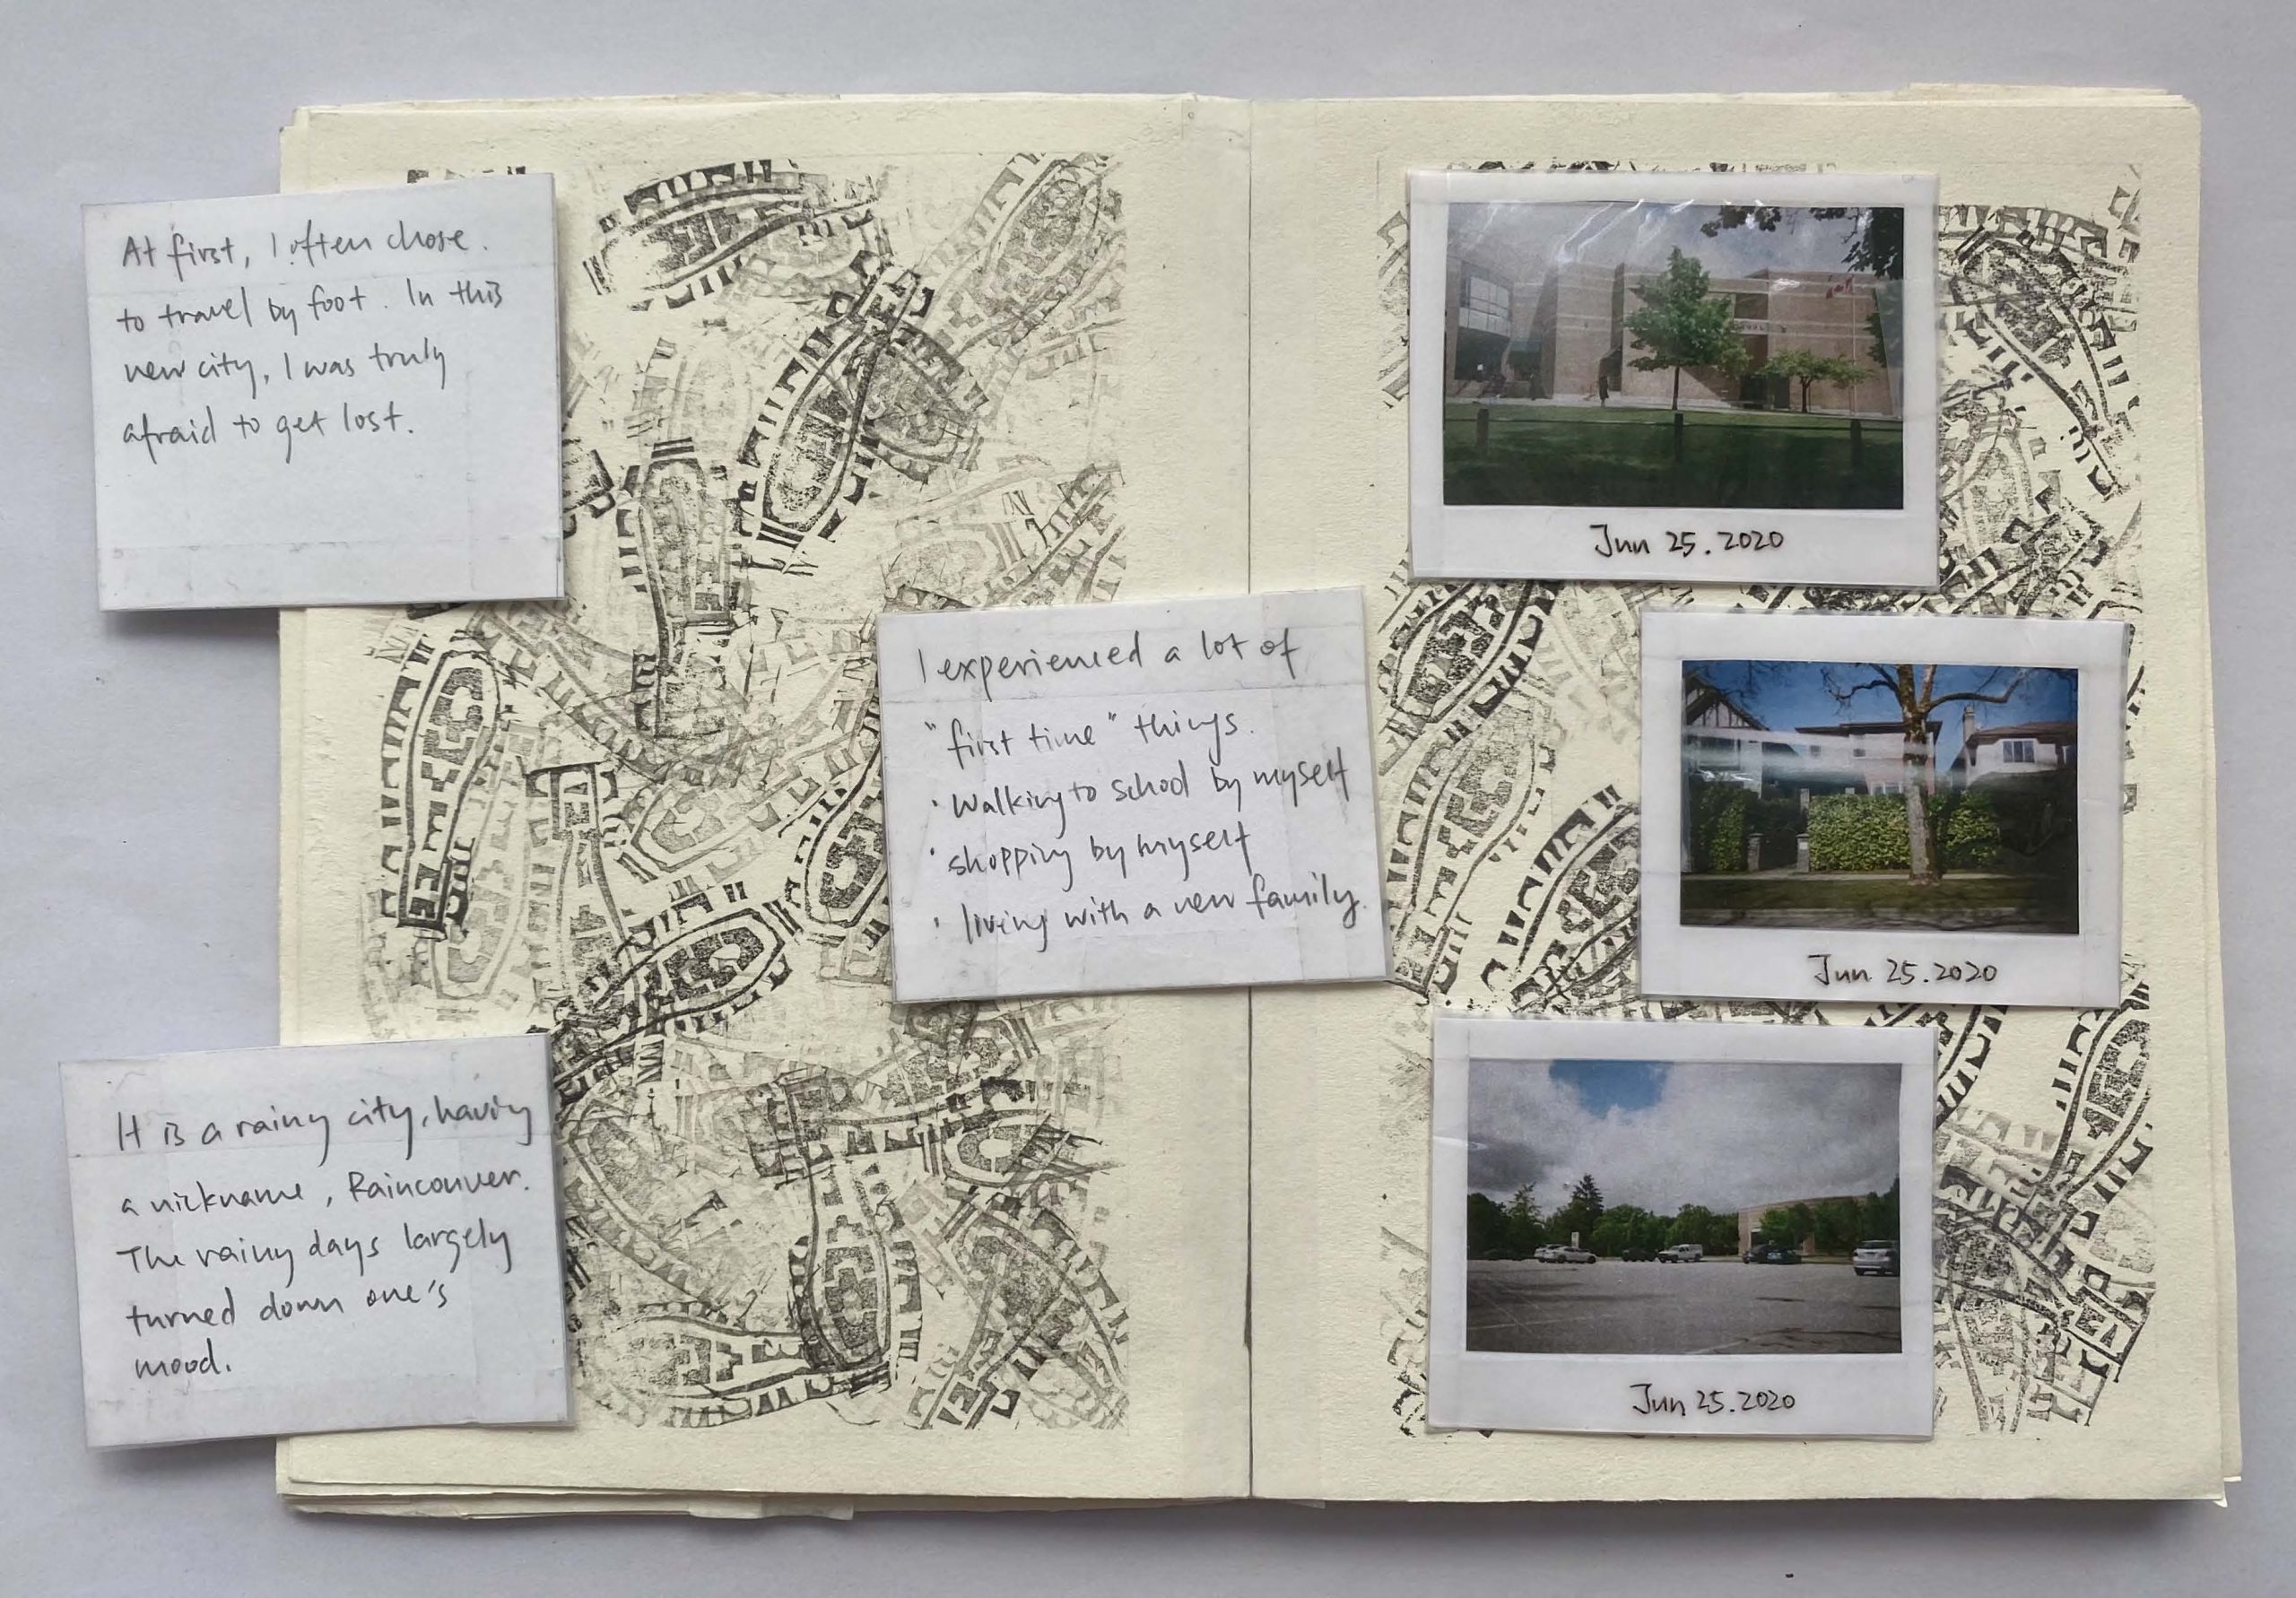 At first, I often chose.
to travel by foot. In this
new city, I was truly
afraid to get lost.
I experienced a lot of
"first time" things.
· Walking to school by myself
· shopping by myself
· living with a new family.
It is a rainy city, having
a nickname, Raincouver.
The rainy days largely
turned down one's
mood.
Jun 25.2020
Jun 25.2020
Jun 25.2020